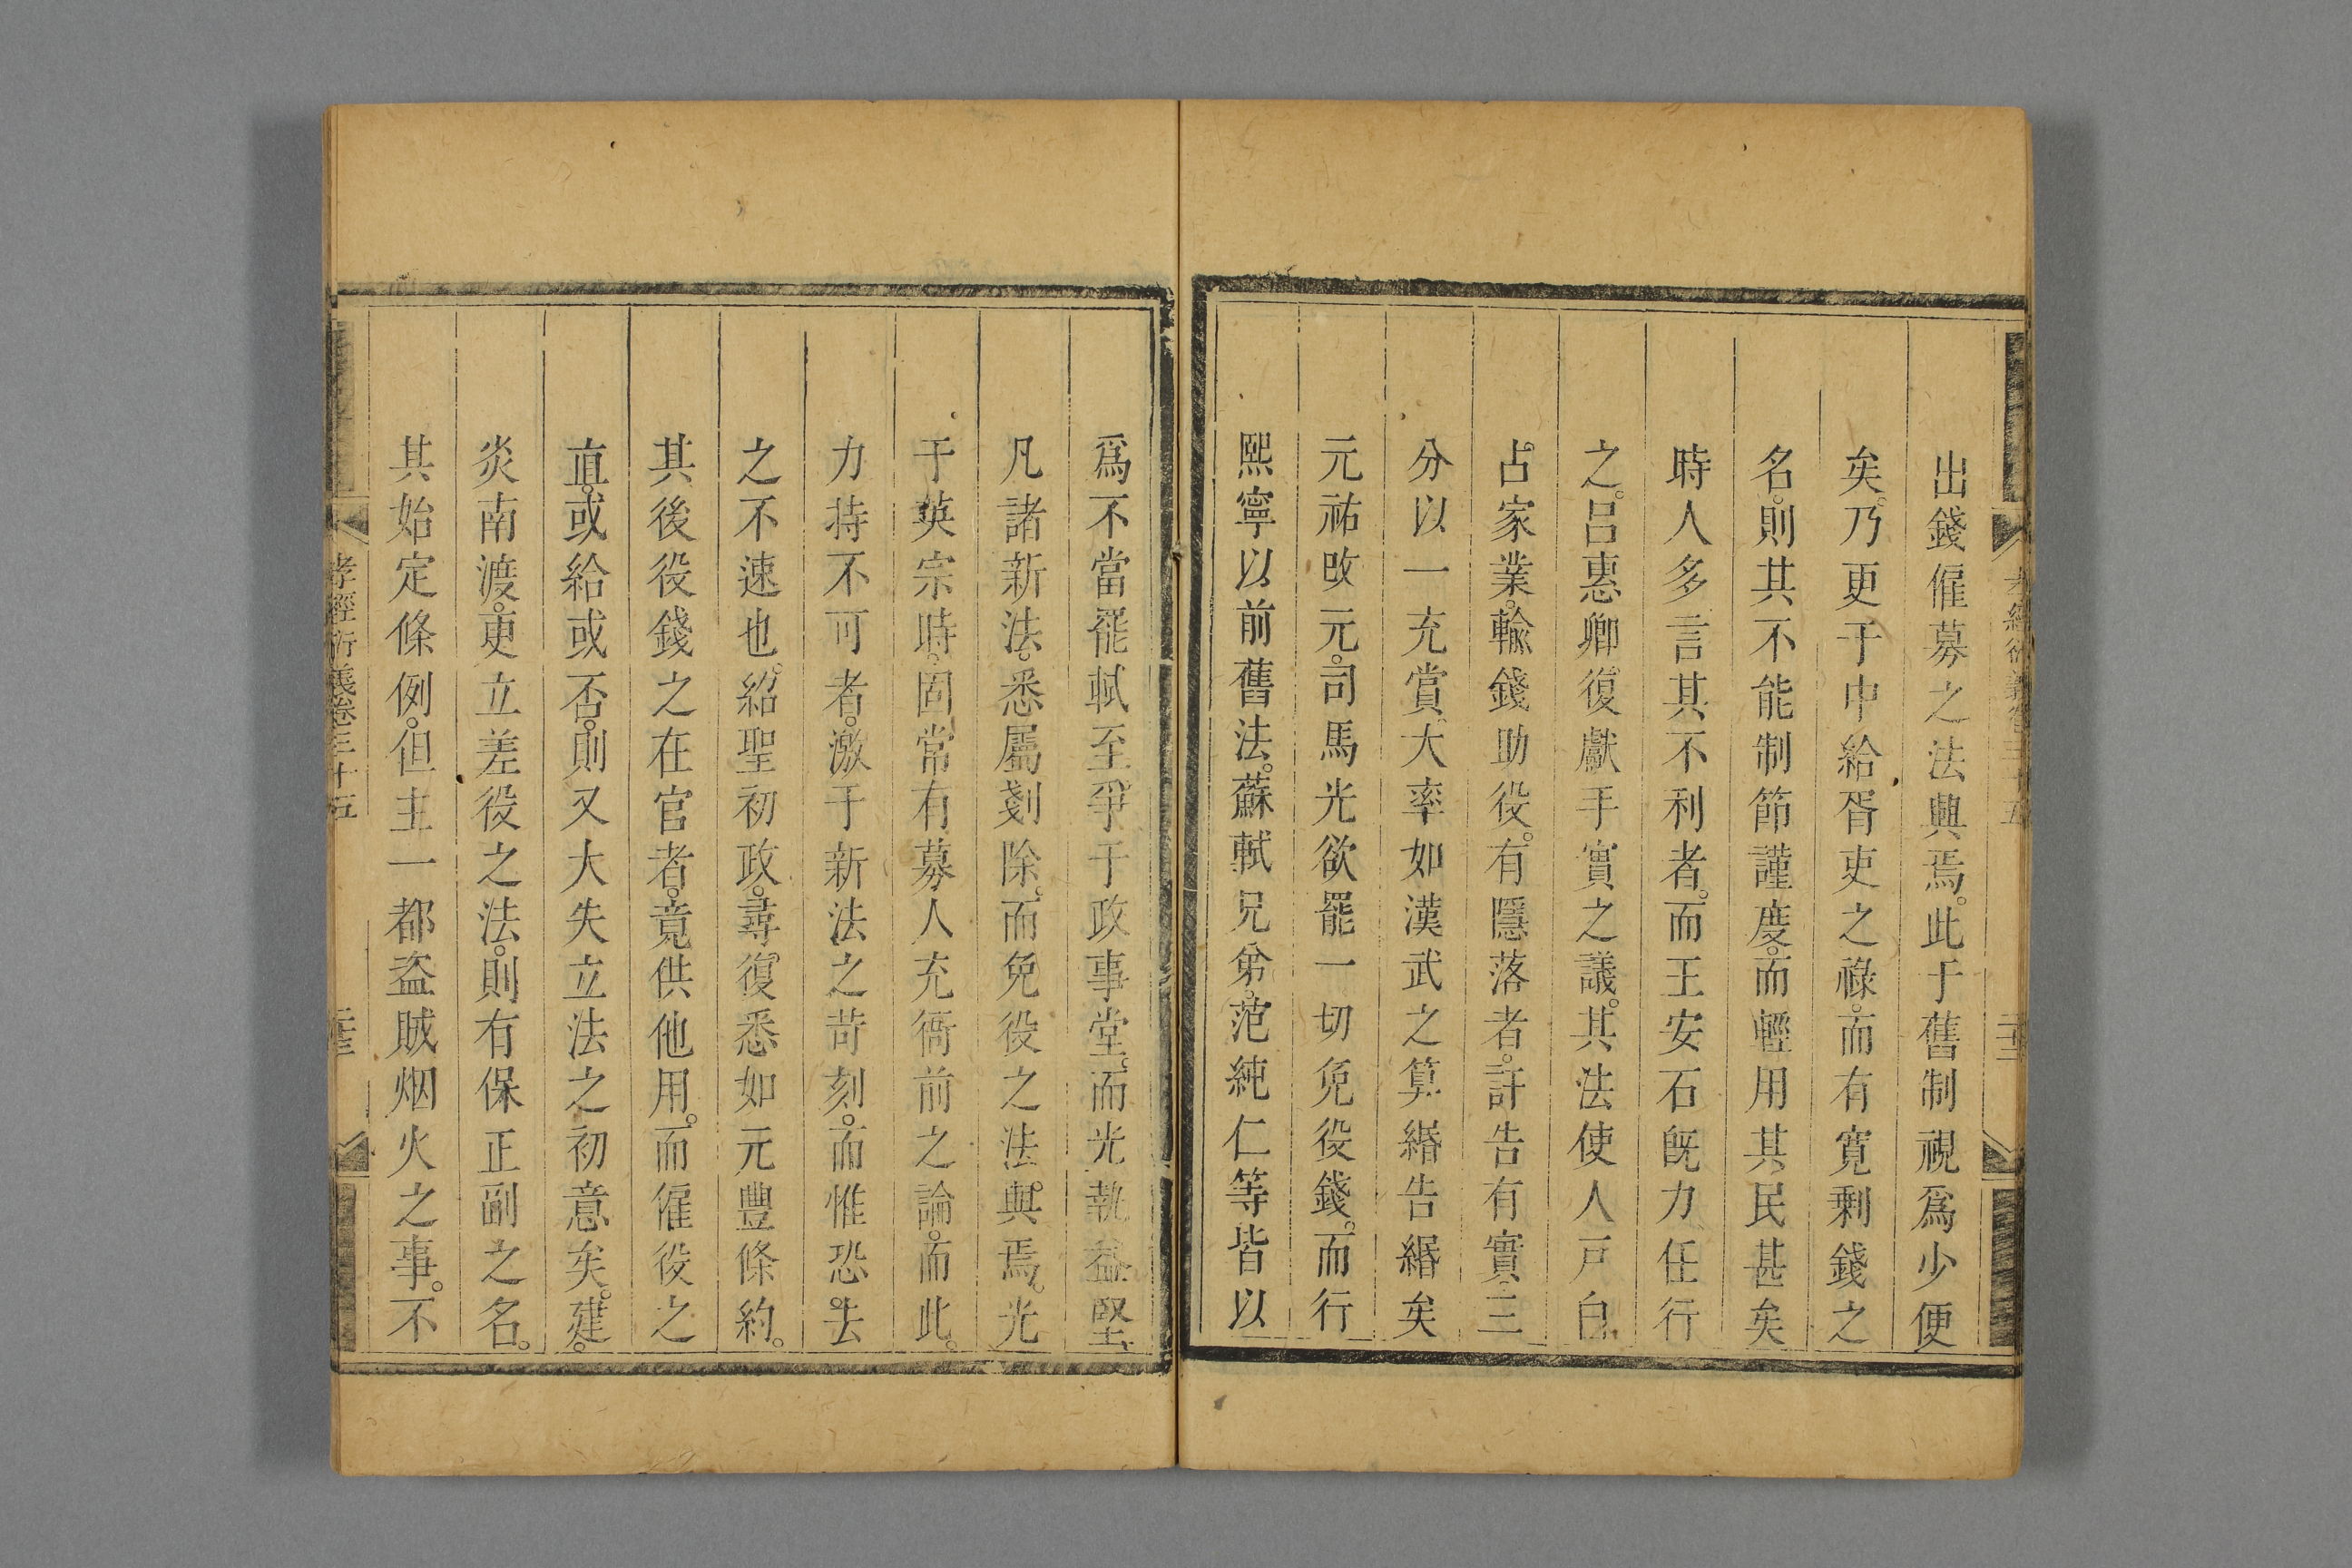 出錢僱募之法興焉。此于舊制視爲少便
矣。乃更于中給胥吏之祿。而有寬剩錢之
名。則其不能制節謹度。而輕用其民甚矣
時人多言其不利者。而王安石旣力任行
之。呂惠卿復獻手實之議。其法使人戸自
占家業。輸錢助役。有隱落者。許告有實三
分以一充賞大率如漢武之算緡告緡矣
元祐改元。司馬光欲罷一切免役錢。而行
熙寧以前舊法。蘇軾兄弟。范純仁等皆以
爲不當罷軾至爭于政事堂。而光執益堅、
凡諸新法。悉屬剗除。而免役之法興焉。光
于英宗時。固常有募人充衙前之論。而此。
力持不可者。激于新法之苛刻。而惟恐。去
之不速也。紹聖初政。尋復悉如元豐條約。
其後役錢之在官者。竟供他用。而僱役之
直。或給或否。則又大失立法之初意矣。建。
炎南渡。更立差役之法。則有保正副之名。
其始定條例。但主一都盜賊烟火之事。不
孝經衍義卷三十五